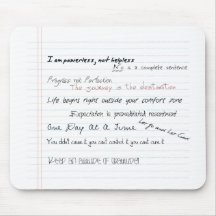 I am powerless, not helpless
No is a complete sentence
Progress not Perfection
The journey is the destination
Life begins right outside your comfort zone
Expectation is premeditated resentment
One Day At A Time
You didn't cause it you can't control it you can't cure it
Keep an attitude of gratitude!